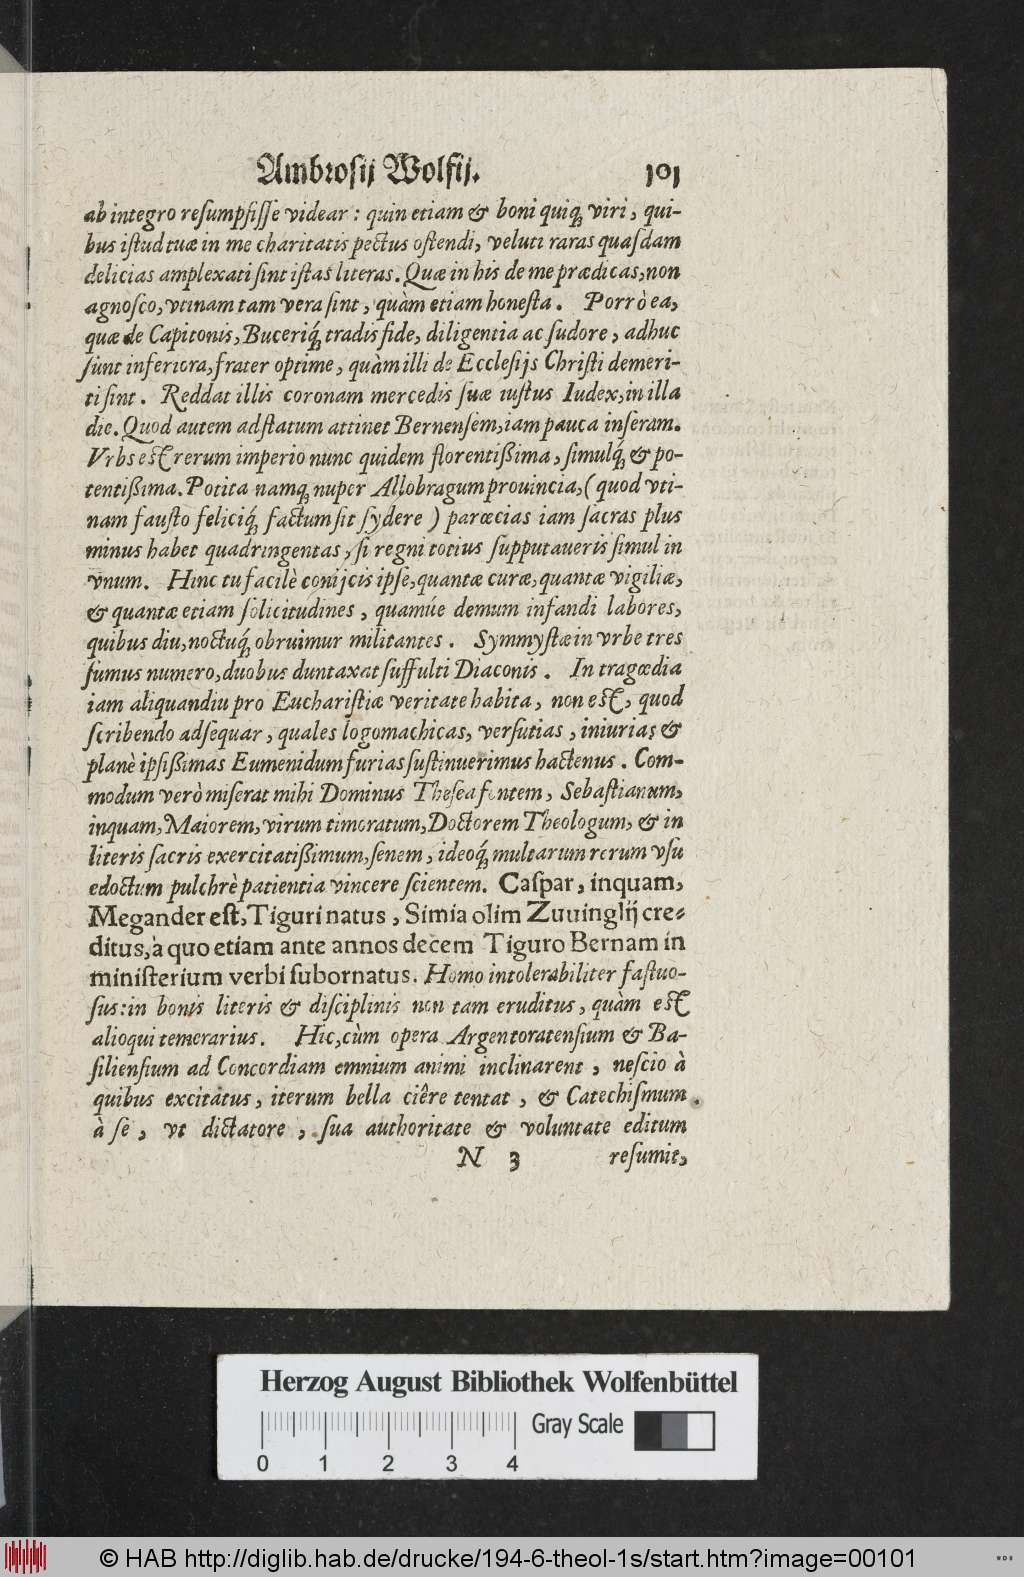 Ambrosij Wolfij. 101
ab integro resumpsisse videar: quin etiam & boni quiq́; viri, qui-
bus istud tuæ in me charitatis pectus ostendi, veluti raras quasdam
delicias amplexati sint istas literas. Quæ in his de me prædicas, non
agnosco, vtinam tam vera sint, quàm etiam honesta. Porrò ea,
quæ de Capitonis, Buceriq́; tradis fide, diligentia ac sudore, adhuc
sunt inferiora, frater optime, quàm illi de Ecclesijs Christi demeri-
ti sint. Reddat illis coronam mercedis suæ iustus Iudex, in illa
die. Quod autem ad statum attinet Bernensem, iam pauca inseram.
Vrbs est rerum imperio nunc quidem florentißima, simulq́; & po-
tentißima. Potita namq; nuper Allobragum prouincia, (quod vti-
nam fausto feliciq́; factum sit sydere) parœcias iam sacras plus
minus habet quadringentas, si regni totius supputaueris simul in
vnum. Hinc tu facilè conijcis ipse, quantæ curæ, quantæ vigiliæ,
& quantæ etiam solicitudines, quamúe demum infandi labores,
quibus diu, noctuq́; obruimur militantes. Symmystæ in vrbe tres
sumus numero, duobus duntaxat suffulti Diaconis. In tragœdia
iam aliquandiu pro Eucharistiæ veritate habita, non est, quod
scribendo adsequar, quales logomachicas, versutias, iniurias &
planè ipsißimas Eumenidum furias sustinuerimus hactenus. Com-
modum verò miserat mihi Dominus Thesea fontem, Sebastianum,
inquam, Maiorem, virum timoratum, Doctorem Theologum, & in
literis sacris exercitatißimum, senem, ideoq́; multarum rerum vsu
edoctum pulchrè patientia vincere scientem. Caspar, inquam,
Megander est, Tiguri natus, Simia olim Zuuinglij cre-
ditus, à quo etiam ante annos decem Tiguro Bernam in
ministerium verbi subornatus. Homo intolerabiliter fastuo-
sus: in bonis literis & disciplinis non tam eruditus, quàm est
alioqui temerarius. Hic, cùm opera Argentoratensium & Ba-
siliensium ad Concordiam omnium animi inclinarent, nescio à
quibus excitatus, iterum bella ciêre tentat, & Catechismum
à se, vt dictatore, sua authoritate & voluntate editum
N 3 resumit,
Herzog August Bibliothek Wolfenbüttel
Gray Scale
0 1 2 3 4
© HAB http://diglib.hab.de/drucke/194-6-theol-1s/start.htm?image=00101